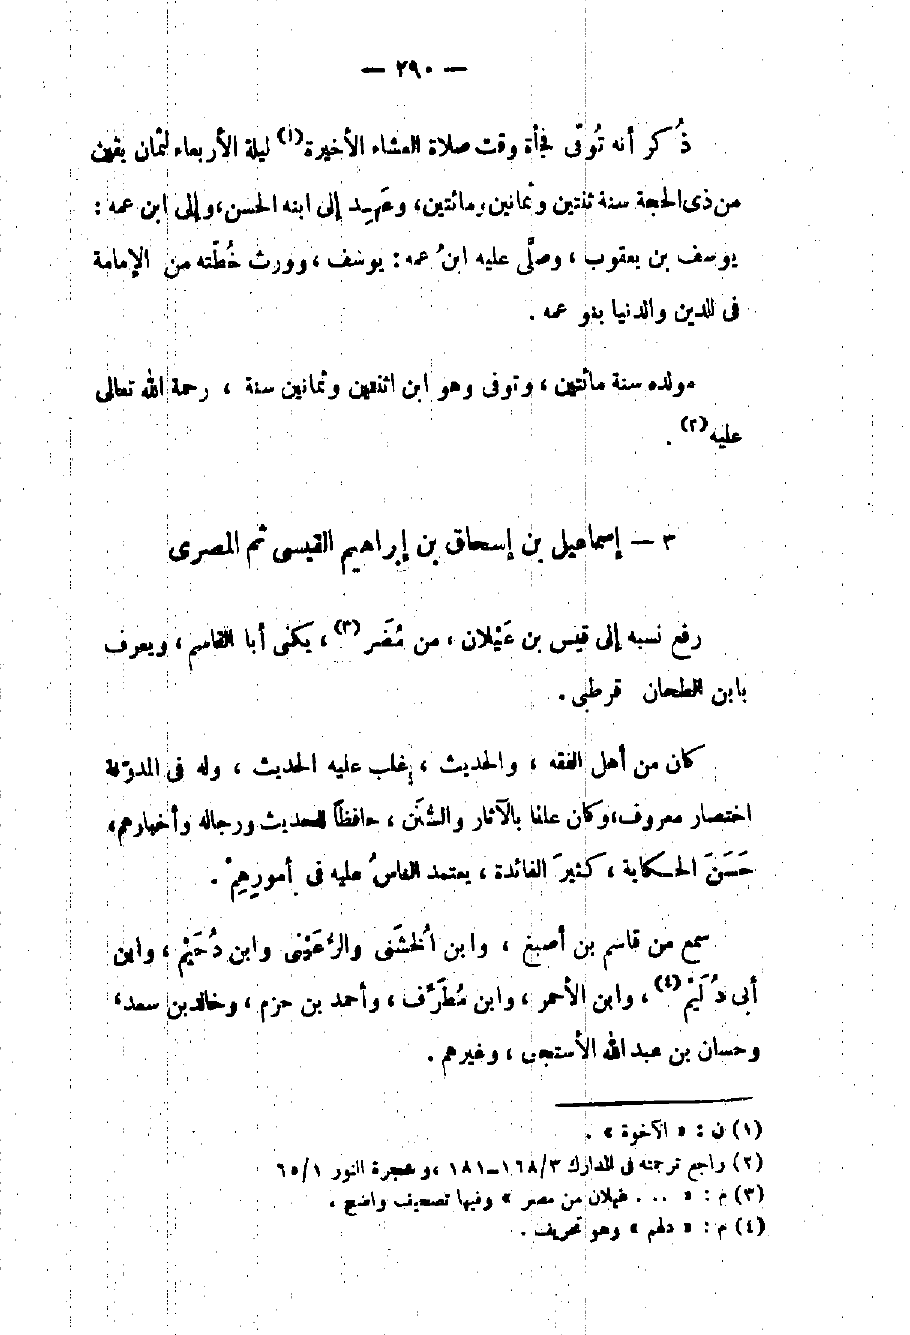 — ٢٩٠ —
ذُكر أنه تُوفّى فجأة وقت صلاة العشاء الأخيرة(١) ليلة الأربعاء لثمان بقين
من ذى الحجة سنة ثنتين وثمانين ومائتين، وعَهِد إلى ابنه الحسن، وإلى ابن عمه :
يوسف بن يعقوب ، وصلَّى عليه ابنُ عمه : يوسف ، وورث خُطّته من الإمامة
فى للدين والدنيا بنو عمه .
مولده سنة مائتين ، وتوفى وهو ابن اثنتين وثمانين سنة ، رحمة الله تعالى
عليه(٢) .
٣ — إسماعيل بن إسحاق بن إبراهيم القيسى ثم المصرى
رفع نسبه إلى قيس بن عَيْلان ، من مُضَر(٣) ، يكنى أبا القاسم ، ويعرف
بابن الطحان قرطبى .
كان من أهل الفقه ، والحديث ، وغلب عليه الحديث ، وله فى المدوّنة
اختصار معروف، وكان عالمًا بالآثار والسُّنَن ، حافظًا للحديث ورجاله وأخبارهم،
حَسَنَ الحكاية ، كثيرَ الفائدة ، يعتمد الناسُ عليه فى أمورِهِمْ .
سمع من قاسم بن أصبغ ، وابن الْخشَنى والرُّعَيْنى وابن دُحَيْم ، وابن
أبى دُلَيْم(٤) ، وابن الأحمر ، وابن مُطَرِّف ، وأحمد بن حزم ، وخالد بن سعد ،
وحسان بن عبد الله الأستجى ، وغيرهم .
(١) ن : « الآخوة » .
(٢) راجع ترجمته فى المدارك ٣/١٦٨–١٨١ ، وشجرة النور ١/٦٥
(٣) م : « . . . غيلان من مصر » وفيها تصحيف واضح .
(٤) م : « دلهم » وهو تحريف .